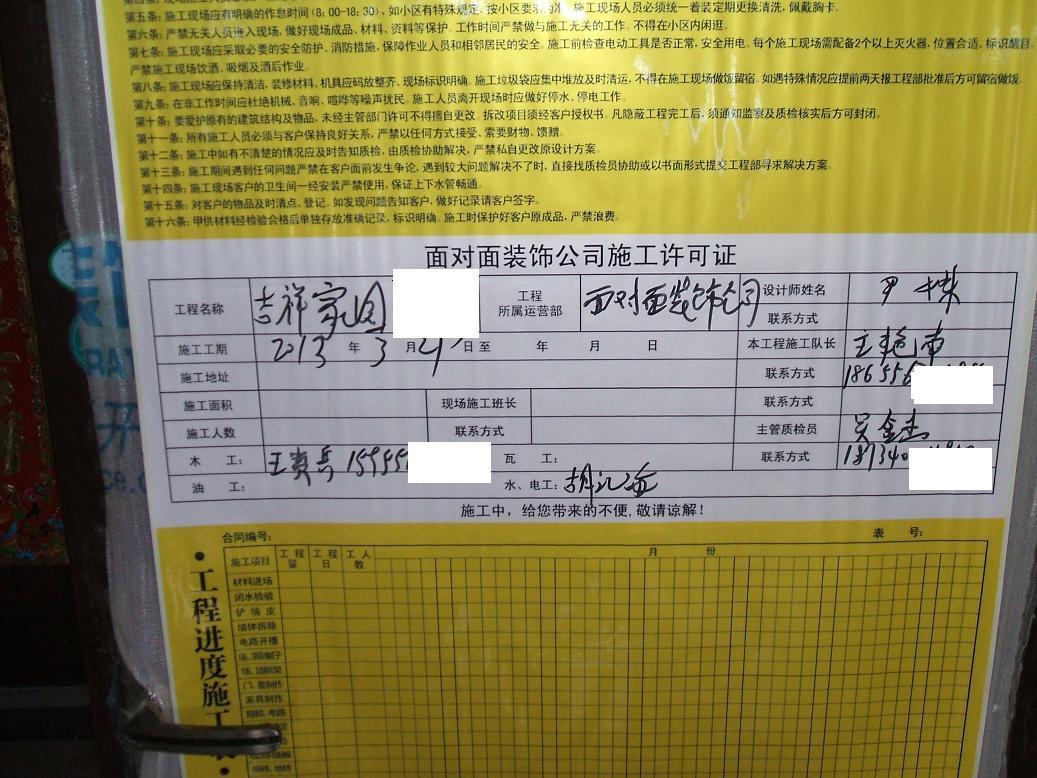 第五条：施工现场应有明确的作息时间（8：00-18：30），如小区有特殊规定，按小区要求为准。施工现场人员必须统一着装定期更换清洗，佩戴胸卡。
第六条：严禁无关人员进入现场，做好现场成品、材料、资料等保护。工作时间严禁做与施工无关的工作。不得在小区内闲逛。
第七条：施工现场应采取必要的安全防护、消防措施，保障作业人员和相邻居民的安全。施工前检查电动工具是否正常，安全用电。每个施工现场需配备2个以上灭火器，位置合适，标识醒目。
严禁施工现场饮酒、吸烟及酒后作业。
第八条：施工现场应保持清洁，装修材料，机具应码放整齐、现场标识明确。施工垃圾袋应集中堆放及时清运，不得在施工现场做饭留宿。如遇特殊情况应提前两天报工程部批准后方可留宿做饭。
第九条：在非工作时间应杜绝机械、音响、喧哗等噪声扰民。施工人员离开现场时应做好停水、停电工作。
第十条：要爱护原有的建筑结构及物品，未经主管部门许可不得擅自更改。拆改项目须经客户授权书。凡隐蔽工程完工后，须通知监察及质检核实后方可封闭。
第十一条：所有施工人员必须与客户保持良好关系，严禁以任何方式接受、索要财物、馈赠。
第十二条：施工中如有不清楚的情况应及时告知质检，由质检协助解决，严禁私自更改原设计方案。
第十三条：施工期间遇到任何问题严禁在客户面前发生争论，遇到较大问题解决不了时，直接找质检员协助或以书面形式提交工程部寻求解决方案。
第十四条：施工现场客户的卫生间一经安装严禁使用，保证上下水管畅通。
第十五条：对客户的物品及时清点、登记。如发现问题告知客户，做好记录请客户签字。
第十六条：甲供材料经检验合格后单独存放准确记录，标识明确。施工时保护好客户原成品，严禁浪费。
面对面装饰公司施工许可证
工程名称 吉祥家园 工程所属运营部 面对面装饰公司 设计师姓名 尹栋
联系方式
施工工期 2013 年 3 月 21 日至 年 月 日 本工程施工队长 王艳南
施工地址 联系方式 186556
施工面积 现场施工班长 联系方式
施工人数 联系方式 主管质检员 吴金杰
木 工： 15955 瓦 工： 联系方式 181340
油 工： 水、电工：胡
施工中，给您带来的不便，敬请谅解！
合同编号： 表 号：
工程进度施工表
施工项目 工程量 工程日 工人数 月 份
材料进场
闭水检验
铲墙皮
墙体拆除
电路开槽
家具制作